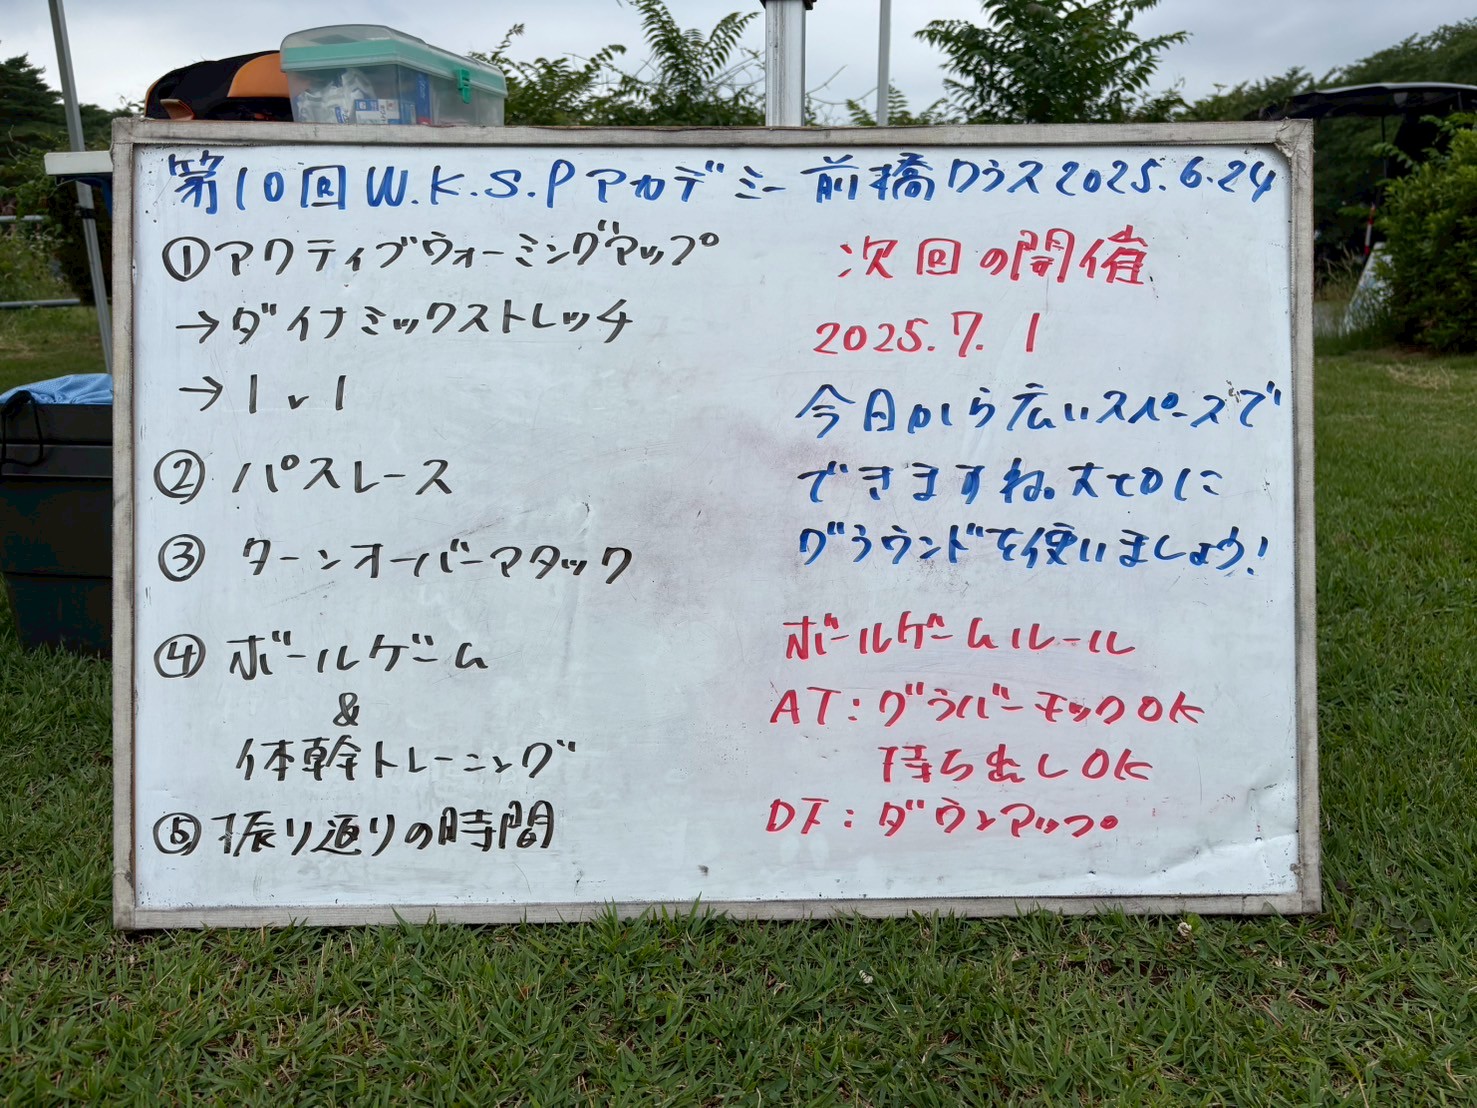 第10回W.K.S.Pアカデミー 前橋クラス2025.6.24
①アクティブウォーミングアップ
→ダイナミックストレッチ
→1v1
② パスレース
③ ターンオーバーアタック
④ ボールゲーム
&
体幹トレーニング
⑤振り返りの時間
次回の開催
2025.7.1
今日から広いスペースで
できますね。大切に
グラウンドを使いましょう!
ボールゲームルール
AT:グラバーモックOK
持ち出しOK
DF:ダウンアップ